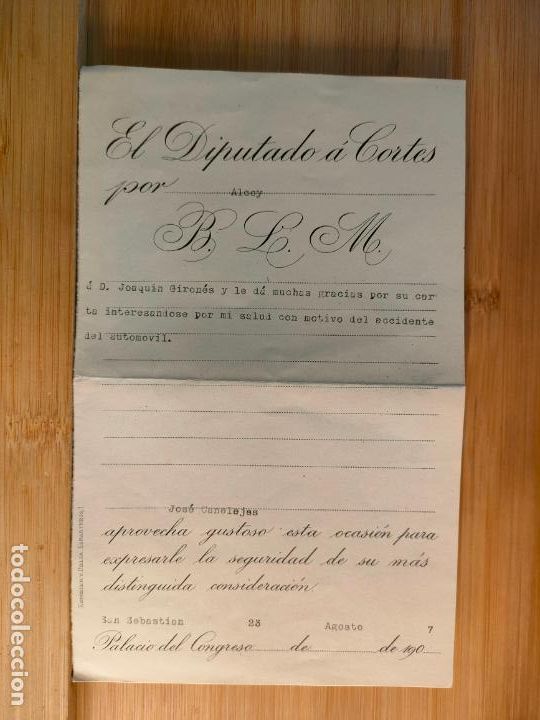 El Diputado á Cortes
por Alcoy
B. L. M.
á D. Joaquin Gironés y le dá muchas gracias por su car
ta interesandose por mi salud con motivo del accidente
del automovil.
José Canalejas
aprovecha gustoso esta ocasión para
expresarle la seguridad de su más
distinguida consideración.
San Sebastian 23 Agosto 7
Palacio del Congreso de de 190
todocoleccion